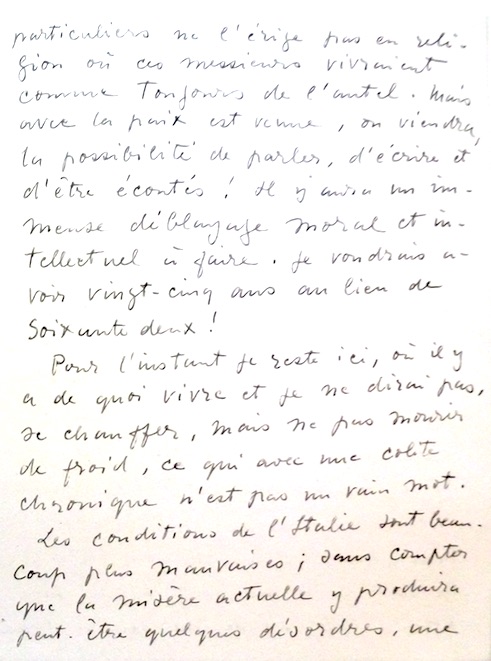 particuliers ne l'érige pas en reli-
gion où ces messieurs vivraient
comme Toujours de l'autel. Mais
avec la paix est venue, ou viendra,
la possibilité de parler, d'écrire et
d'être écoutés ! Il y aura un im-
mense déblayage moral et in-
tellectuel à faire. Je voudrais a-
voir vingt-cinq ans au lieu de
Soixante deux !
Pour l'instant je reste ici, où il y
a de quoi vivre et je ne dirai pas,
se chauffer, mais ne pas mourir
de froid, ce qui avec une colite
chronique n'est pas un vain mot.
Les conditions de l'Italie sont beau-
coup plus mauvaises ; sans compter
que la misère actuelle y produira
peut-être quelques désordres, une